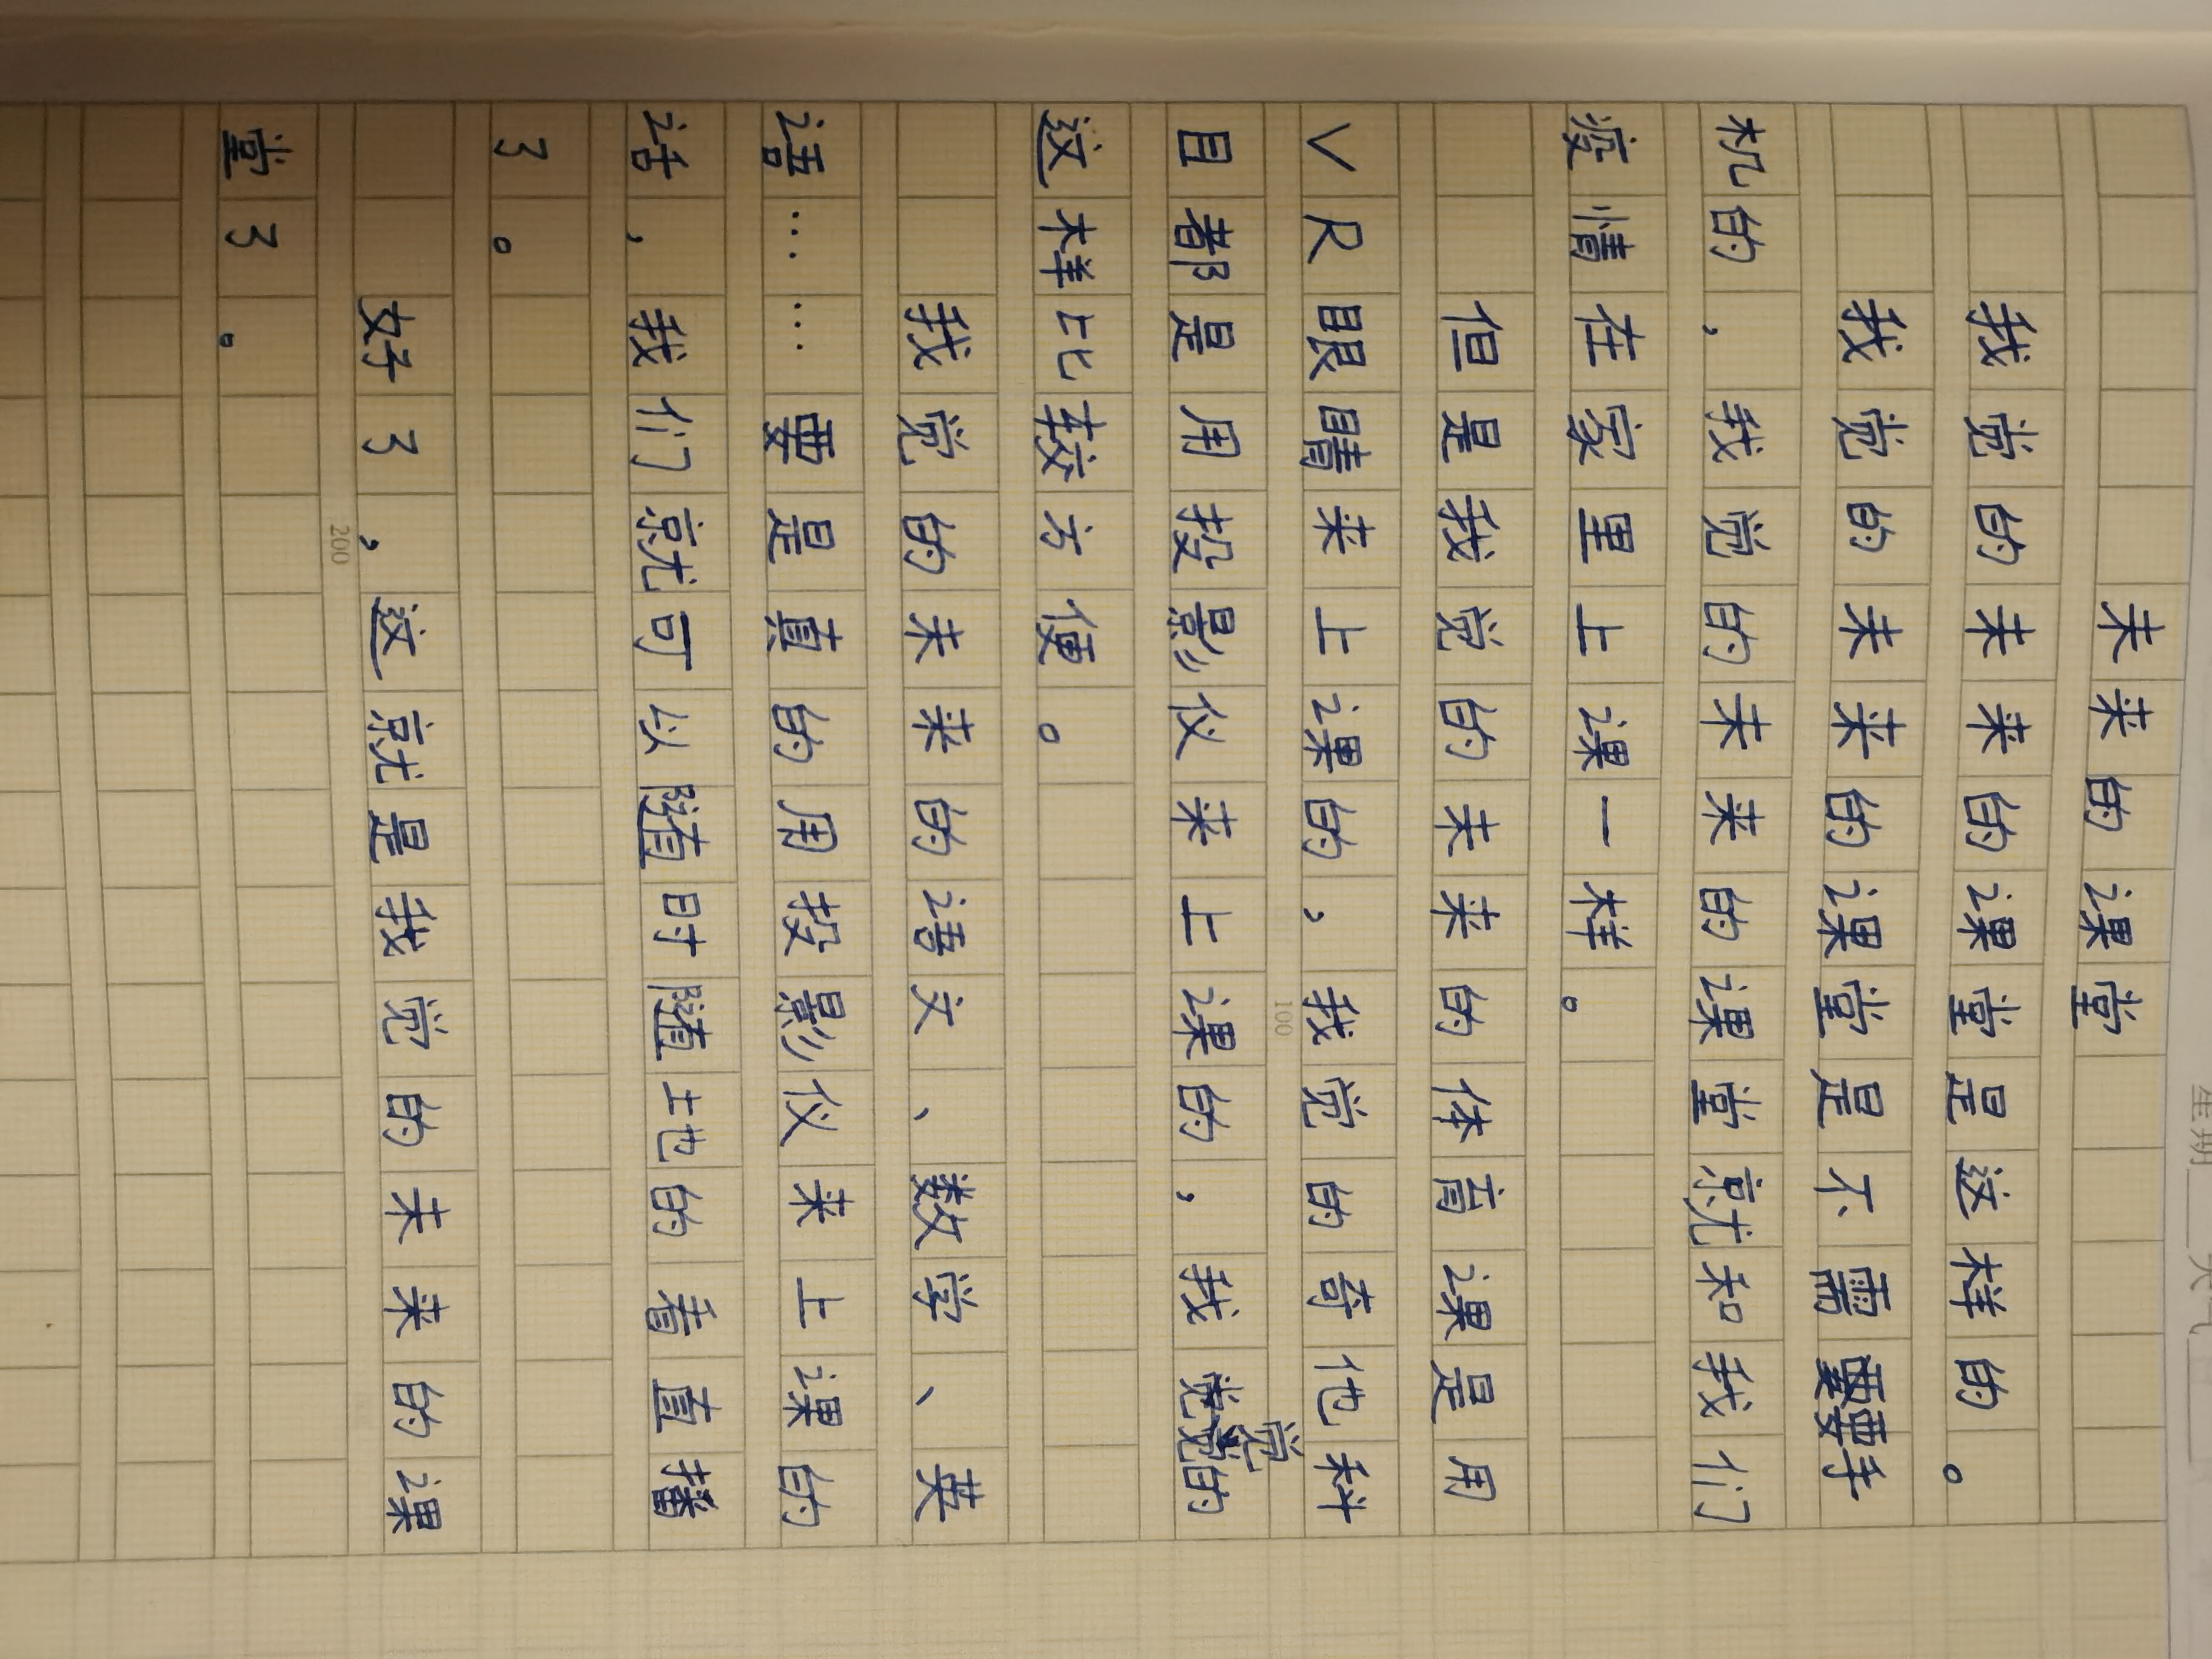 未来的课堂
我觉的未来的课堂是这样的。
我觉的未来的课堂是不需要手
机的，我觉的未来的课堂就和我们
疫情在家里上课一样。
但是我觉的未来的体育课是用
VR眼睛来上课的，我觉的奇他科
目都是用投影仪来上课的，我觉的
这样比较方便。
我觉的未来的语文、数学、英
语……要是真的用投影仪来上课的
话，我们就可以随时随地的看直播
了。
好了，这就是我觉的未来的课
堂了。
100
200